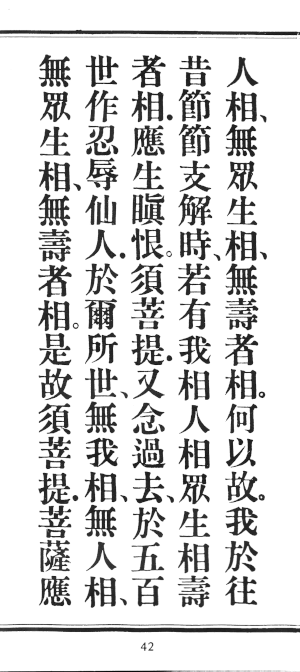 人相、無眾生相、無壽者相。何以故。我於往
昔節節支解時、若有我相人相眾生相壽
者相.應生瞋恨。須菩提.又念過去、於五百
世作忍辱仙人.於爾所世、無我相、無人相、
無眾生相、無壽者相。是故須菩提.菩薩應
42